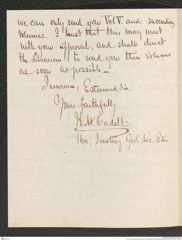 we can only send you Vol V. and succeeding
volumes. I trust that this may meet
with your approval, and shall direct
the Librarian to send you these volumes
as soon as possible.
I remain, Esteemed Sir,
Yours faithfully
H. M. Cadell
Hon. Secretary Geol. Soc. Edin